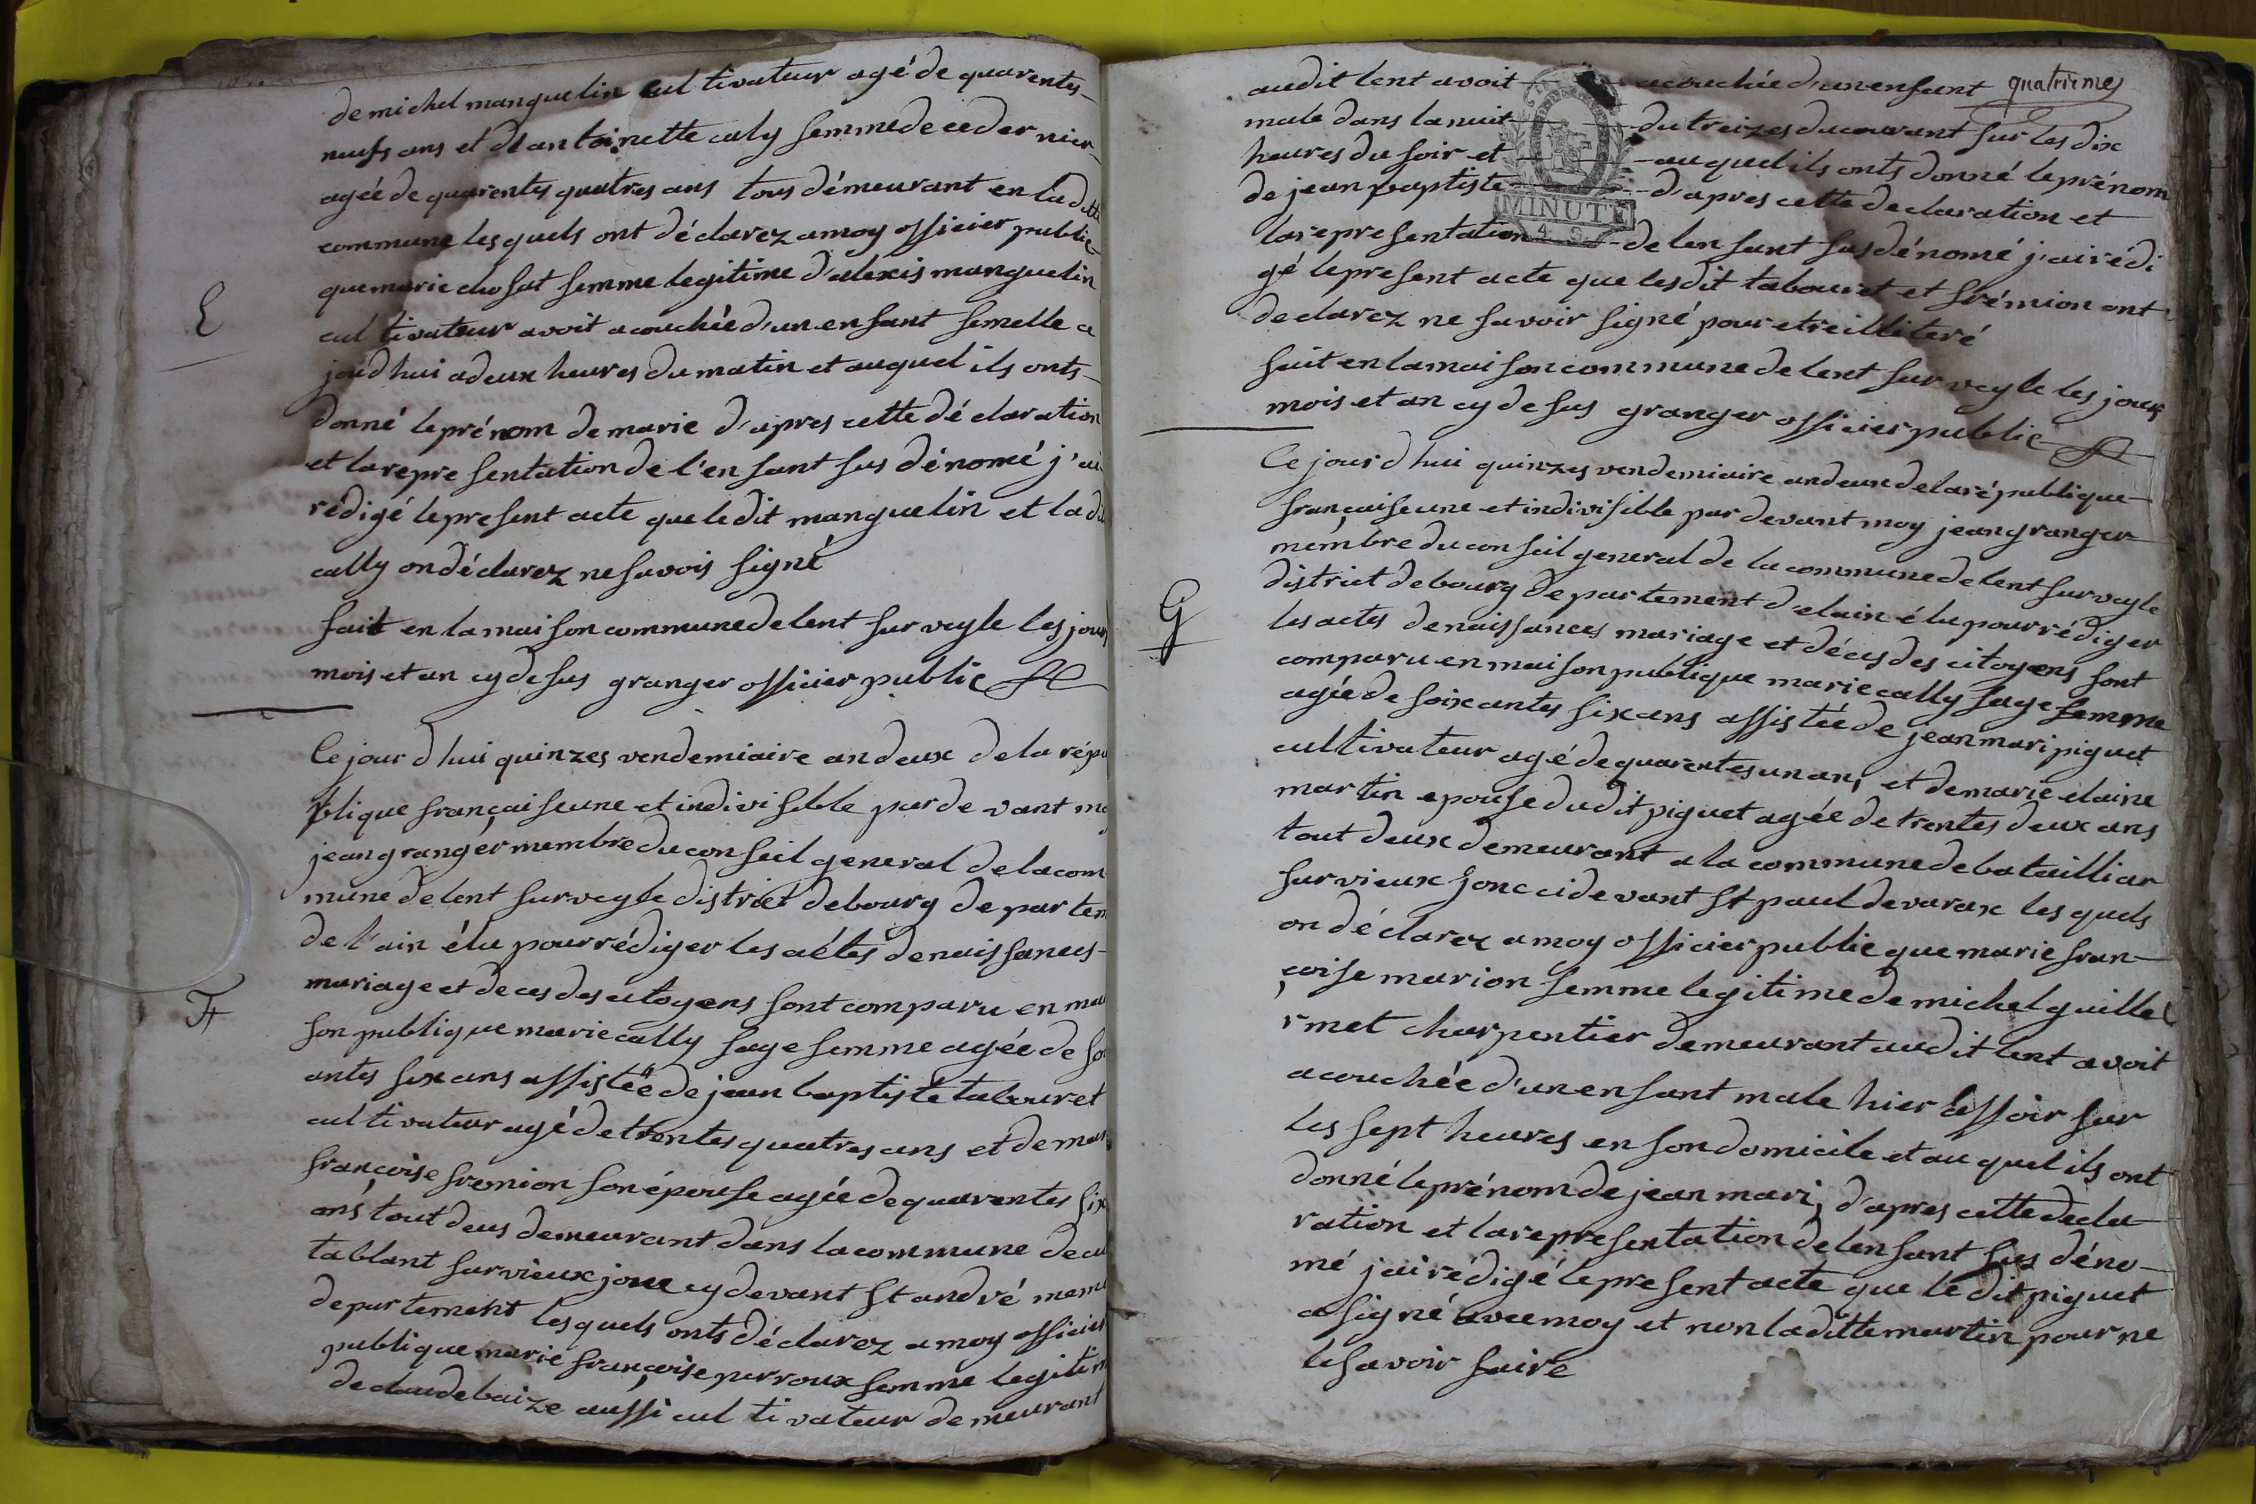 de michel manguelin cultivateur agé de quarentes
neufs ans et de antoinette caly femme de ce dernier
agée de quarentes quatres ans tous démeurant en la ditte
commune les quels ont déclarez a moy officier public
que marie chosat femme legitime d'alexis manguelin
cultivateur avoit acouchée d'un enfant femelle ce
jourd hui a deux heures du matin et auquel ils onts
donné le prénom de marie d'apres cette déclaration
E
et la representation de l'enfant sus dénomé j'ai
rédigé le present acte que le dit manguelin et la d
cally on déclarez ne savois signé
fait en la maison commune de lent sur veyle les jour
mois et an cy desus granger officier public
Ce jour d hui quinzes vendemiaire an deux de la répu
blique française une et indivisible par devant mo
jean granger membre du conseil general de la com
mune de lent sur veyle district de bourg departem
de l'ain élu pour rédiger les actes de naissances
mariage et deces des citoyens sont comparu en mai
F
son publique marie cally sage femme agée de soi
antes six ans assistée de jean baptiste tabouret
cultivateur agé de trentes quatres ans et de mari
françoise fremion son épouse agée de quarentes six
ans tout deus demeurant dans la commune de
tablant sur vieux jonc cy devant st andré meme
departement les quels onts déclarez a moy officier
publique marie françoise perroux femme legitim
de claude baize aussi cultivateur demeurant
quatrieme
audit lent avoit acouchée d'un enfant
male dans la nuit du treizes du courant sur les dix
heures du soir et auquel ils onts donné le prénom
de jean baptiste d'apres cette declaration et
MINUTE
4. S.
la representation de lenfant sus dénomé j'ai rédi
gé le present acte que lesdit tabouret et frémion ont
declarez ne savoir signé pour etre illiteré
fait en la maison commune de lent sur veyle les jour
mois et an cy desus granger officier public
Ce jour d hui quinzes vendemiaire an deux de la république
française une et indivisible par devant moy jean granger
membre du conseil general de la commune de lent sur veyle
district de bourg departement d'elain élu pour rédiger
G
les actes de naissances mariage et décés des citoyens sont
comparu en maison publique marie cally sage femme
agée de soixantes six ans assistée de jean mari piguet
cultivateur agé de quarentes un an, et de marie elaine
martin epouse du dit piguet agée de trentes deux ans
tout deux demeurant a la commune de batailliar
sur vieux jonc ci devant st paul de varax les quels
on déclarez a moy officier public que marie fran
çoise marion femme legitime de michel guillel
rmet charpentier demeurant audit lent avoit
acouchée d'un enfant male hier assoir sur
les sept heures en son domicile et auquel ils ont
donné le prénom de jean mari, d'apres cette decla
ration et la representation de lenfant sus déno
mé jai rédigé le present acte que le dit piguet
a signé avec moy et non la ditte martin pour ne
le savoir faire